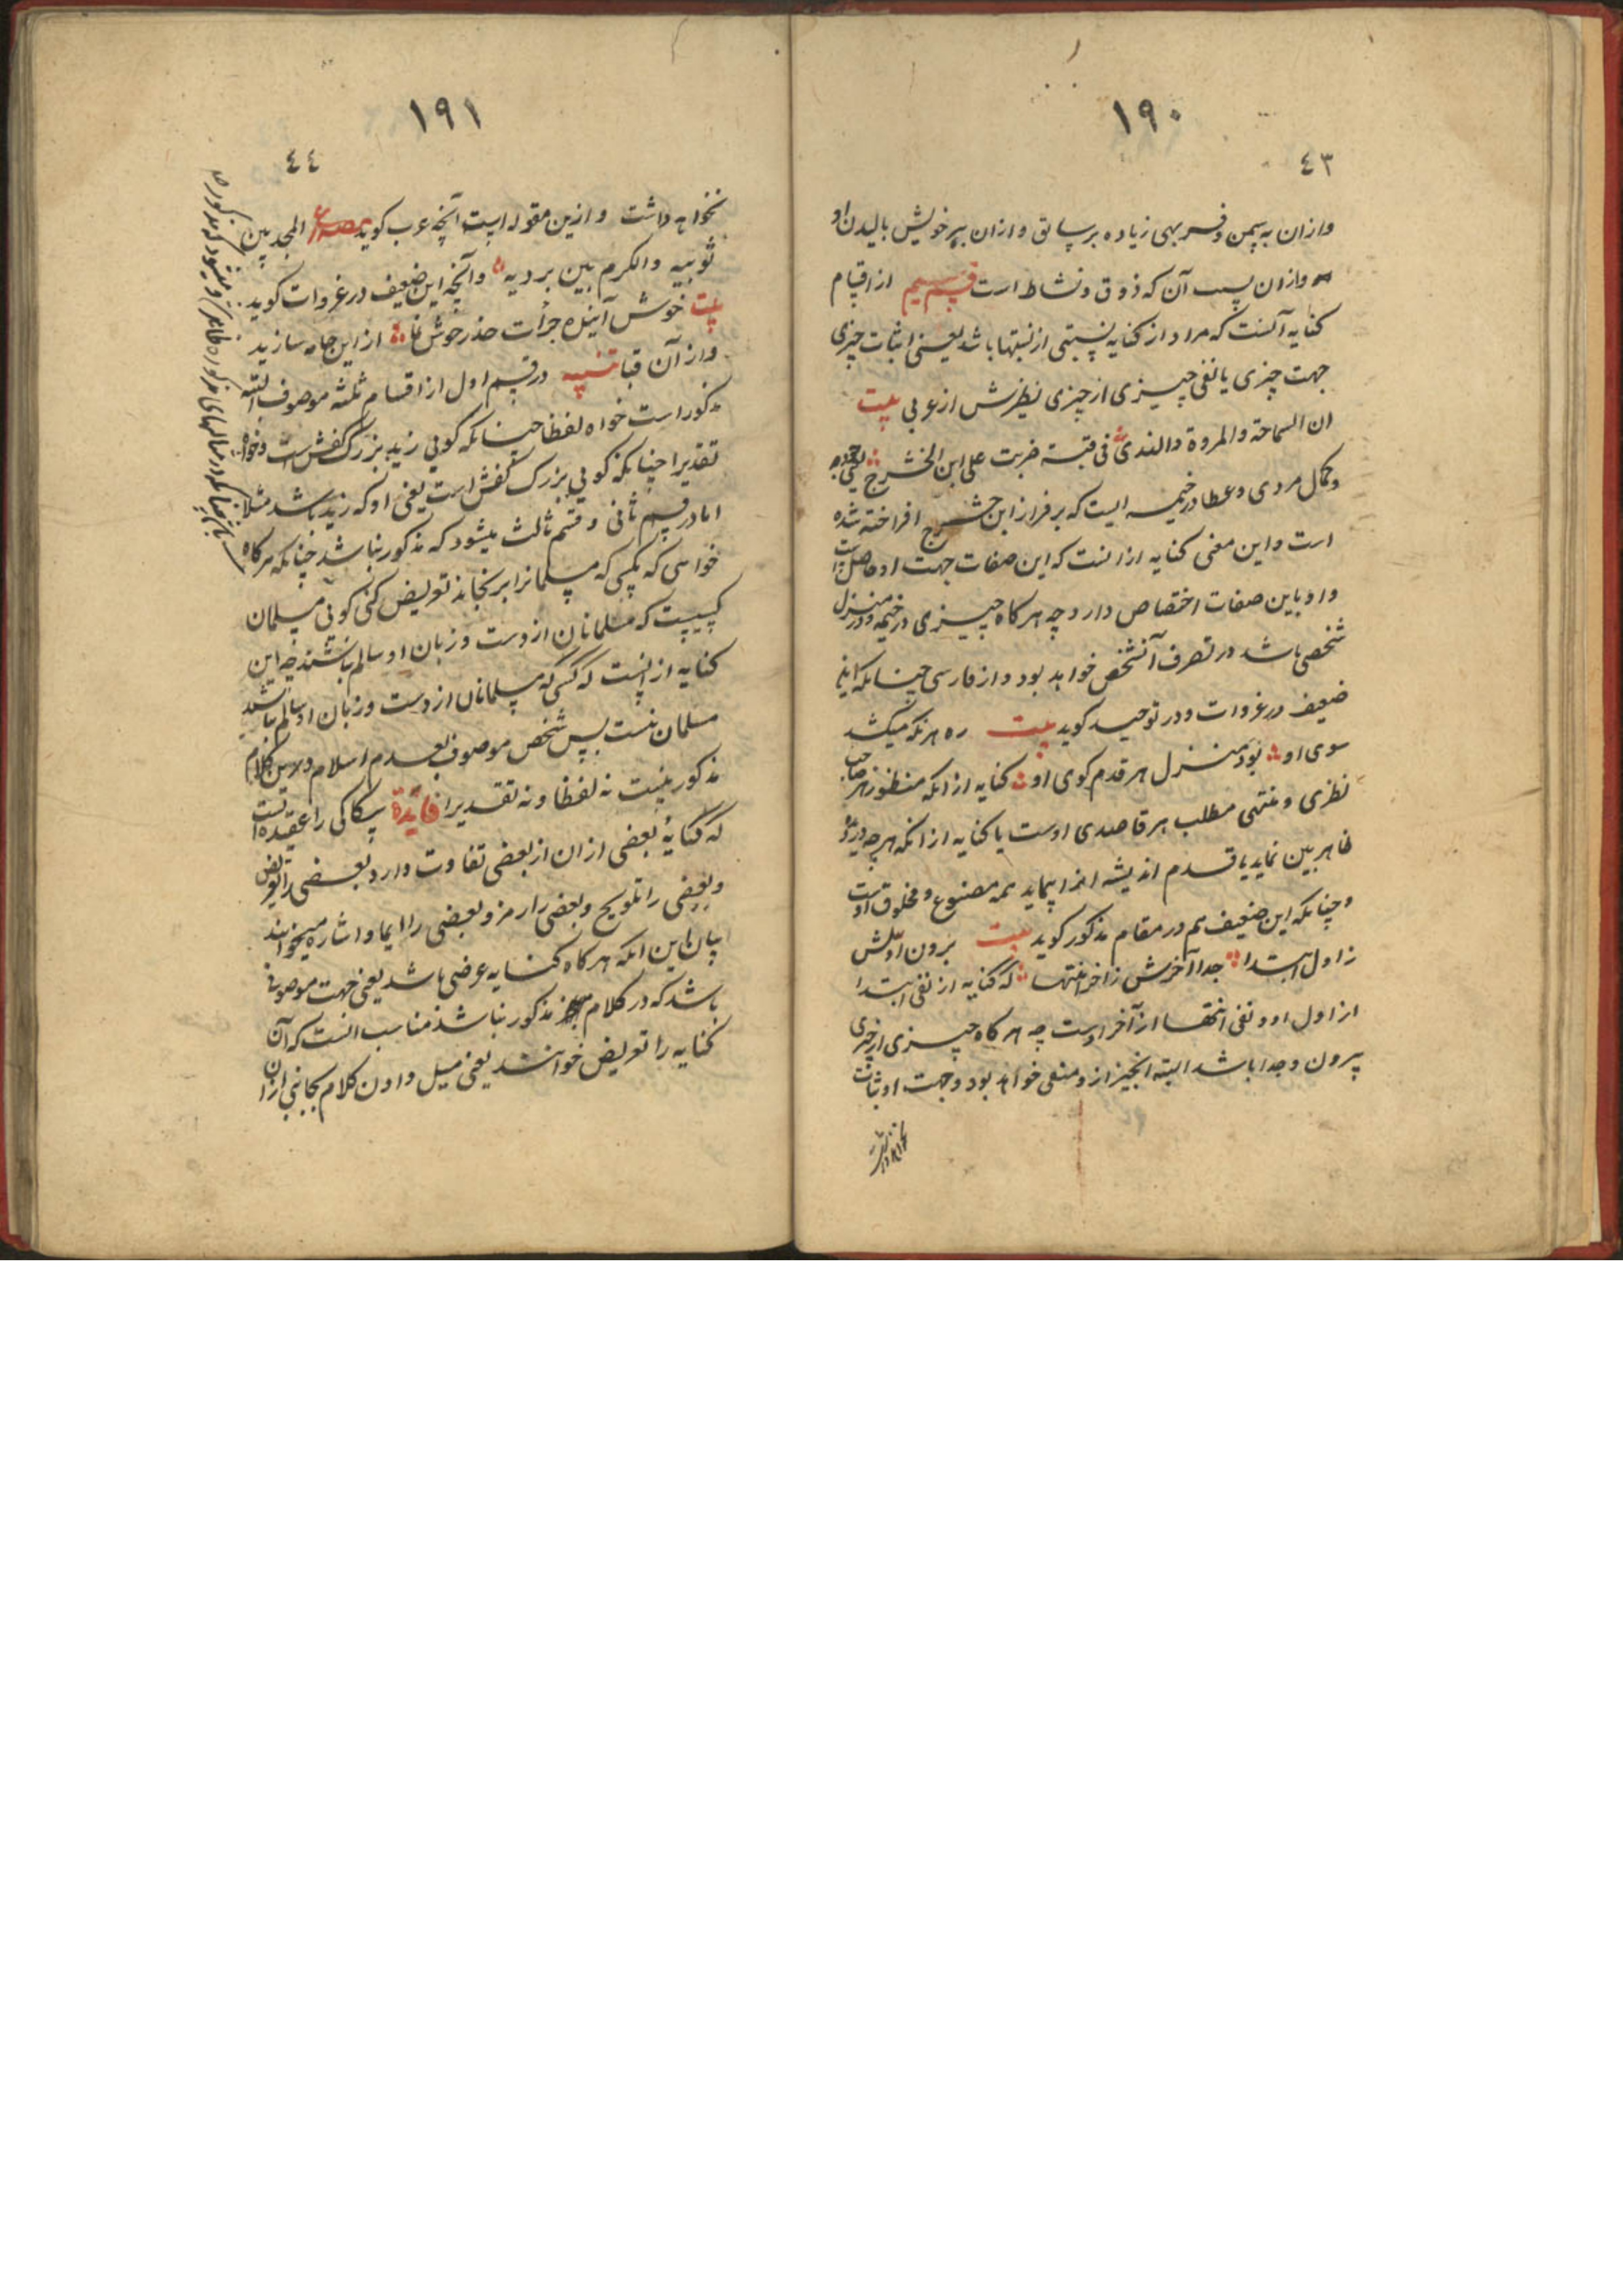 ١٩٠
٤٣
وازان به سمن و فربهی زیاده برسابق وازان بپر خویش بالیدن او
وازان بسبب آن که ذوق و نشاط است قسم سیم از اقسام
کنایه آنست که مراد از کنایه نسبتی از نسبتها باشد یعنی اثبات چیزی
جهت چیزی یا نفی چیزی از چیزی نظرش از عربی بیت
ان السماحة والمروة والندی فی قبة ضربت علی ابن الحشرج یعنی جود
وکمال مردی وعطا در خیمه ایست که بر فراز ابن حشرج افراخته شده
است واین معنی کنایه ازانست که این صفات جهت او حاصل است
واو باین صفات اختصاص دارد چه هرکاه چیزی در خیمه ودر منزل
شخصی باشد در تصرف آنشخص خواهد بود واز فارسی چنانکه این
ضعیف در غزوات ودر توحید کوید بیت ره هرنکه میکشد
سوی او بود منزل هر قدم کوی او کنایه از انکه منظور هر صاحب
نظری ومنتهی مطلب هر قاصدی اوست یا کنایه از انکه هرچه دیدهٔ
ظاهر بین نماید یا قدم اندیشه انرا پیماید همه مصنوع ومخلوق اوست
وچنانکه این ضعیف هم در مقام مذکور کوید بیت برون اولش
زاول ابتدا جدا آخرش زاخر انتها که کنایه از نفی ابتدا
از اول او ونفی انتها از آخر اوست چه هرکاه چیزی از چیزی
بیرون وجدا باشد البته انچیز ازو منفی خواهد بود وجهت او ثبات
نخواهد داشت
١٩١
٤٤
نخواهد داشت وازین مقوله است آنچه عرب کوید مصراع المجد بین
ثوبیه والکرم بین بردیه وآنچه این ضعیف در غزوات کوید
بیت خوش آینده جرأت حذر خوش نما از این جامه سازید
وازآن قبا تنبیه در قسم اول از اقسام ثلثه موصوف البته
مذکور است خواه لفظا چنانکه کوئی زید بزرک کفش است وخواه
تقدیرا چنانکه کوئی بزرک کفش است یعنی او که زید باشد مثلا
اما در قسم ثانی وقسم ثالث میشود که مذکور نباشد چنانکه هرکاه
خواهی که بکسی که مسلمانرا برنجاند تعریض کنی کوئی مسلمان
کسیست که مسلمانان از دست وزبان او سالم باشند چه این
کنایه از انست که کسی که مسلمانان از دست وزبان او سالم نباشند
مسلمان نیست پس شخص موصوف بعدم اسلام درین کلام
مذکور نیست نه لفظا ونه تقدیرا فایدة سکاکی را عقیده آنست
که کنایهٔ بعضی ازان از بعضی تفاوت دارد بعضی را تعریض
وبعضی را تلویح وبعضی را رمز وبعضی را ایما واشاره میخوانند
بیان این انکه هرکاه کنایه عرضی باشد یعنی جهت موصوفی
باشد که در کلام مذکور نباشد مناسب انست که آن
کنایه را تعریض خوانند یعنی میل دادن کلام بجانبی ازان